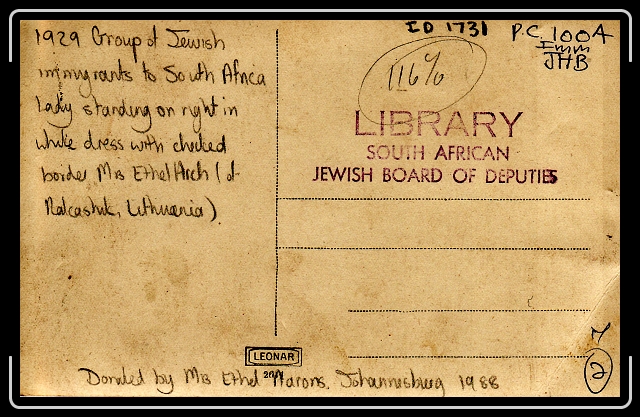 1929 Group of Jewish
immigrants to South Africa
Lady standing on right in
white dress with checked
border Mrs Ethel Arch (of
Lithuania)
ID 1731
P.C. 100A
Imm
JHB
LIBRARY
SOUTH AFRICAN
JEWISH BOARD OF DEPUTIES
LEONAR
Donated by Mrs Ethel Aarons. Johannesburg 1988
2